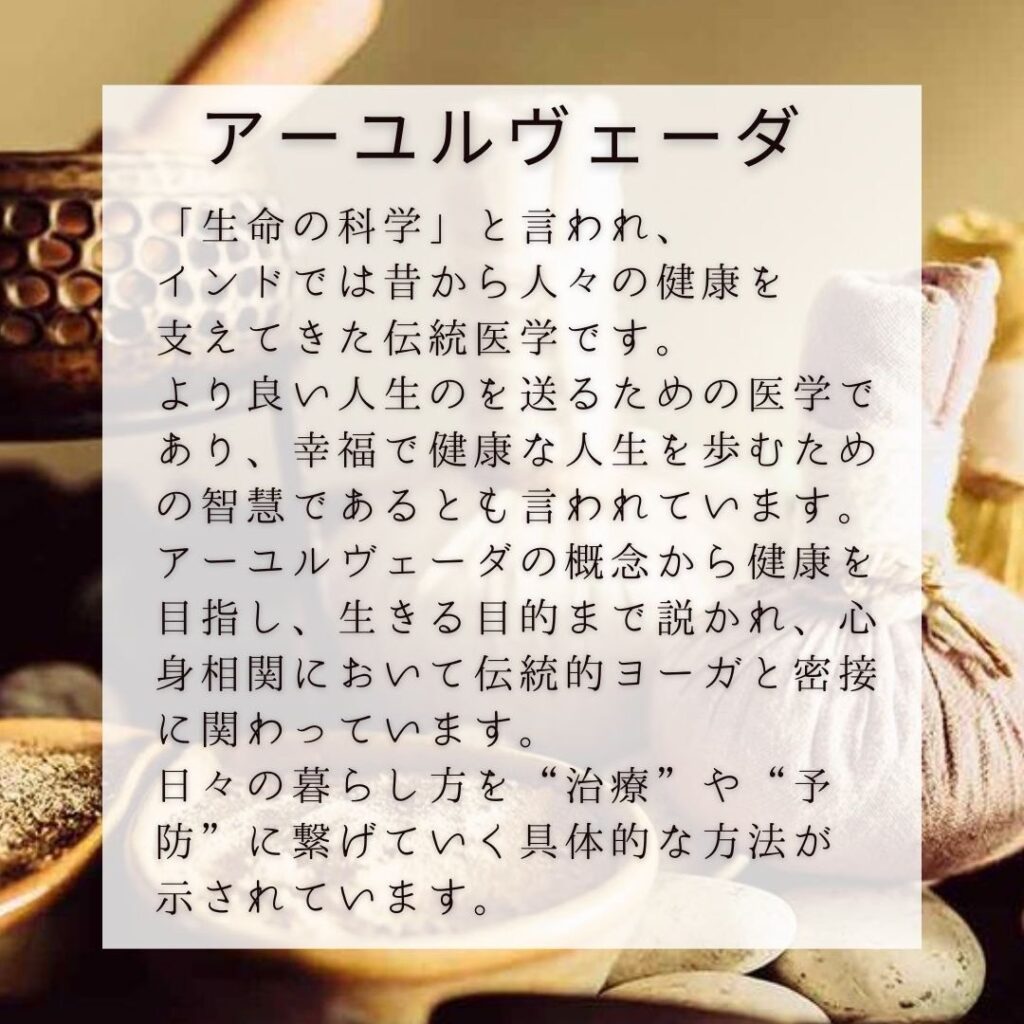 アーユルヴェーダ
「生命の科学」と言われ、
インドでは昔から人々の健康を
支えてきた伝統医学です。
より良い人生のを送るための医学で
あり、幸福で健康な人生を歩むため
の智慧であるとも言われています。
アーユルヴェーダの概念から健康を
目指し、生きる目的まで説かれ、心
身相関において伝統的ヨーガと密接
に関わっています。
日々の暮らし方を“治療”や“予
防”に繋げていく具体的な方法が
示されています。